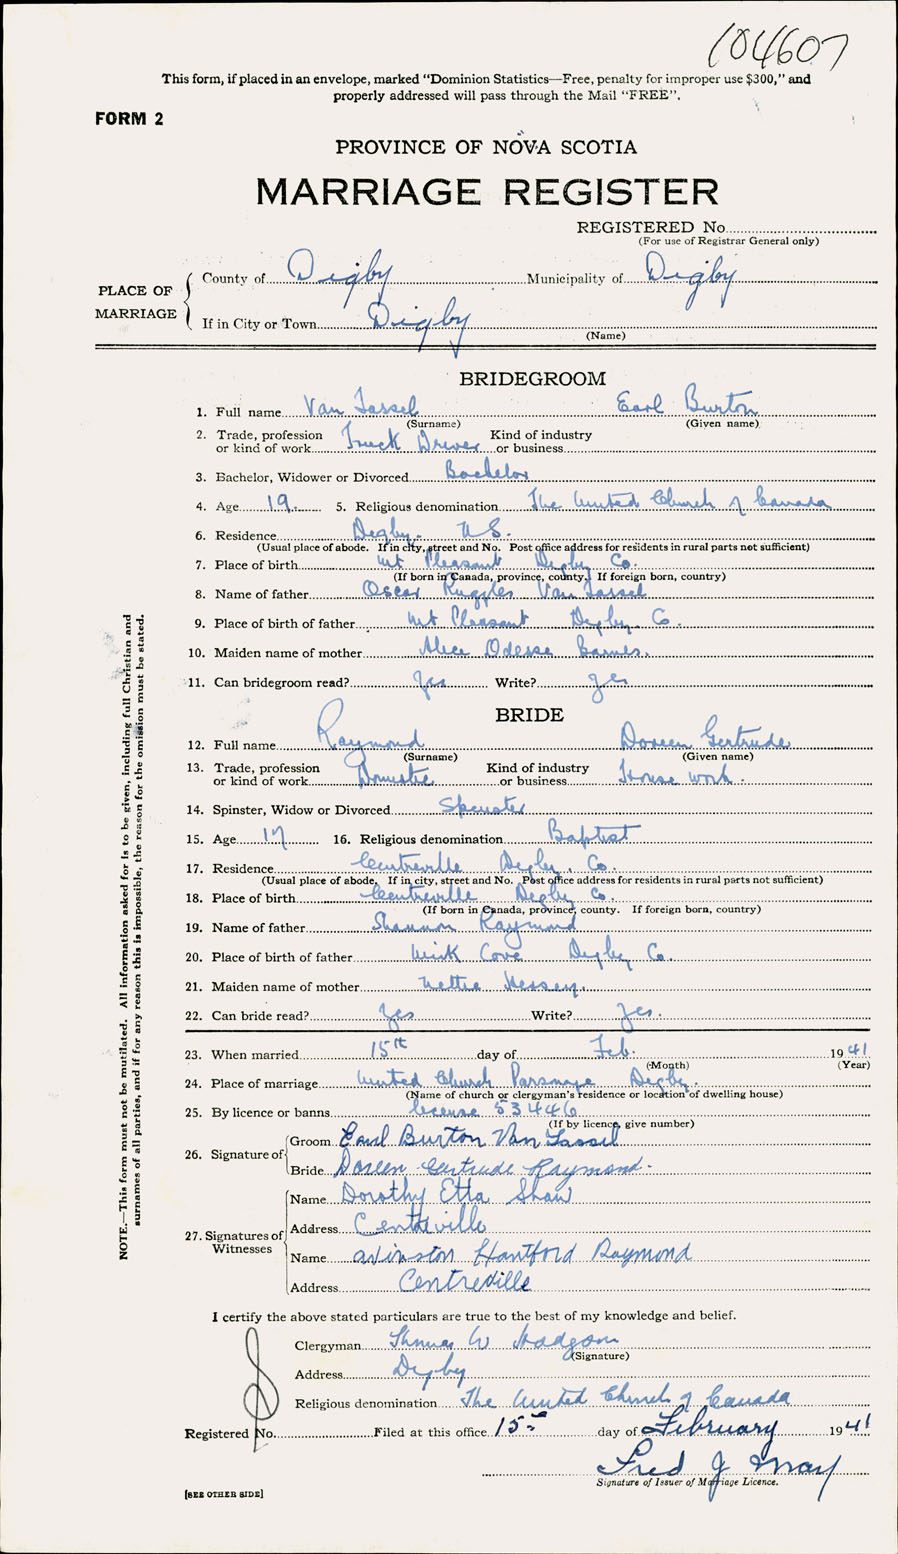 104607
This form, if placed in an envelope, marked "Dominion Statistics—Free, penalty for improper use $300," and
properly addressed will pass through the Mail "FREE".
FORM 2
PROVINCE OF NOVA SCOTIA
MARRIAGE REGISTER
REGISTERED No.
(For use of Registrar General only)
PLACE OF MARRIAGE
County of Digby Municipality of Digby
If in City or Town Digby
(Name)
BRIDEGROOM
1. Full name Van Tassel Earl Burton
(Surname) (Given name)
2. Trade, profession or kind of work Truck Driver Kind of industry or business
3. Bachelor, Widower or Divorced Bachelor
4. Age 19. 5. Religious denomination The United Church of Canada
6. Residence Digby. N.S.
(Usual place of abode. If in city, street and No. Post office address for residents in rural parts not sufficient)
7. Place of birth Mt Pleasant Digby Co.
(If born in Canada, province, county. If foreign born, country)
8. Name of father Oscar Ruggles Van Tassel
9. Place of birth of father Mt Pleasant Digby Co.
10. Maiden name of mother Alice Odessa Barnes.
11. Can bridegroom read? yes Write? yes
BRIDE
12. Full name Raymond Doreen Gertrude
(Surname) (Given name)
13. Trade, profession or kind of work Domestic Kind of industry or business House work.
14. Spinster, Widow or Divorced Spinster
15. Age 17 16. Religious denomination Baptist
17. Residence Centreville Digby. Co.
(Usual place of abode. If in city, street and No. Post office address for residents in rural parts not sufficient)
18. Place of birth Centreville Digby Co.
(If born in Canada, province, county. If foreign born, country)
19. Name of father Shannon Raymond
20. Place of birth of father Mink Cove Digby Co.
21. Maiden name of mother Nettie Hersey.
22. Can bride read? Yes Write? Yes.
23. When married 15th day of Feb. 1941
(Month) (Year)
24. Place of marriage United Church Parsonage Digby.
(Name of church or clergyman's residence or location of dwelling house)
25. By licence or banns license 53446
(If by licence, give number)
26. Signature of
Groom Earl Burton Van Tassel
Bride Doreen Gertrude Raymond.
27. Signatures of Witnesses
Name Dorothy Etta Shaw
Address Centreville
Name Winston Hantford Raymond
Address Centreville
I certify the above stated particulars are true to the best of my knowledge and belief.
Clergyman Thomas W Hodgson
(Signature)
Address Digby
Religious denomination The United Church of Canada
Registered No. Filed at this office 15th day of February 1941
Fred J May
Signature of Issuer of Marriage Licence.
[SEE OTHER SIDE]
NOTE.—This form must not be mutilated. All information asked for is to be given, including full Christian and
surnames of all parties, and if for any reason this is impossible, the reason for the omission must be stated.